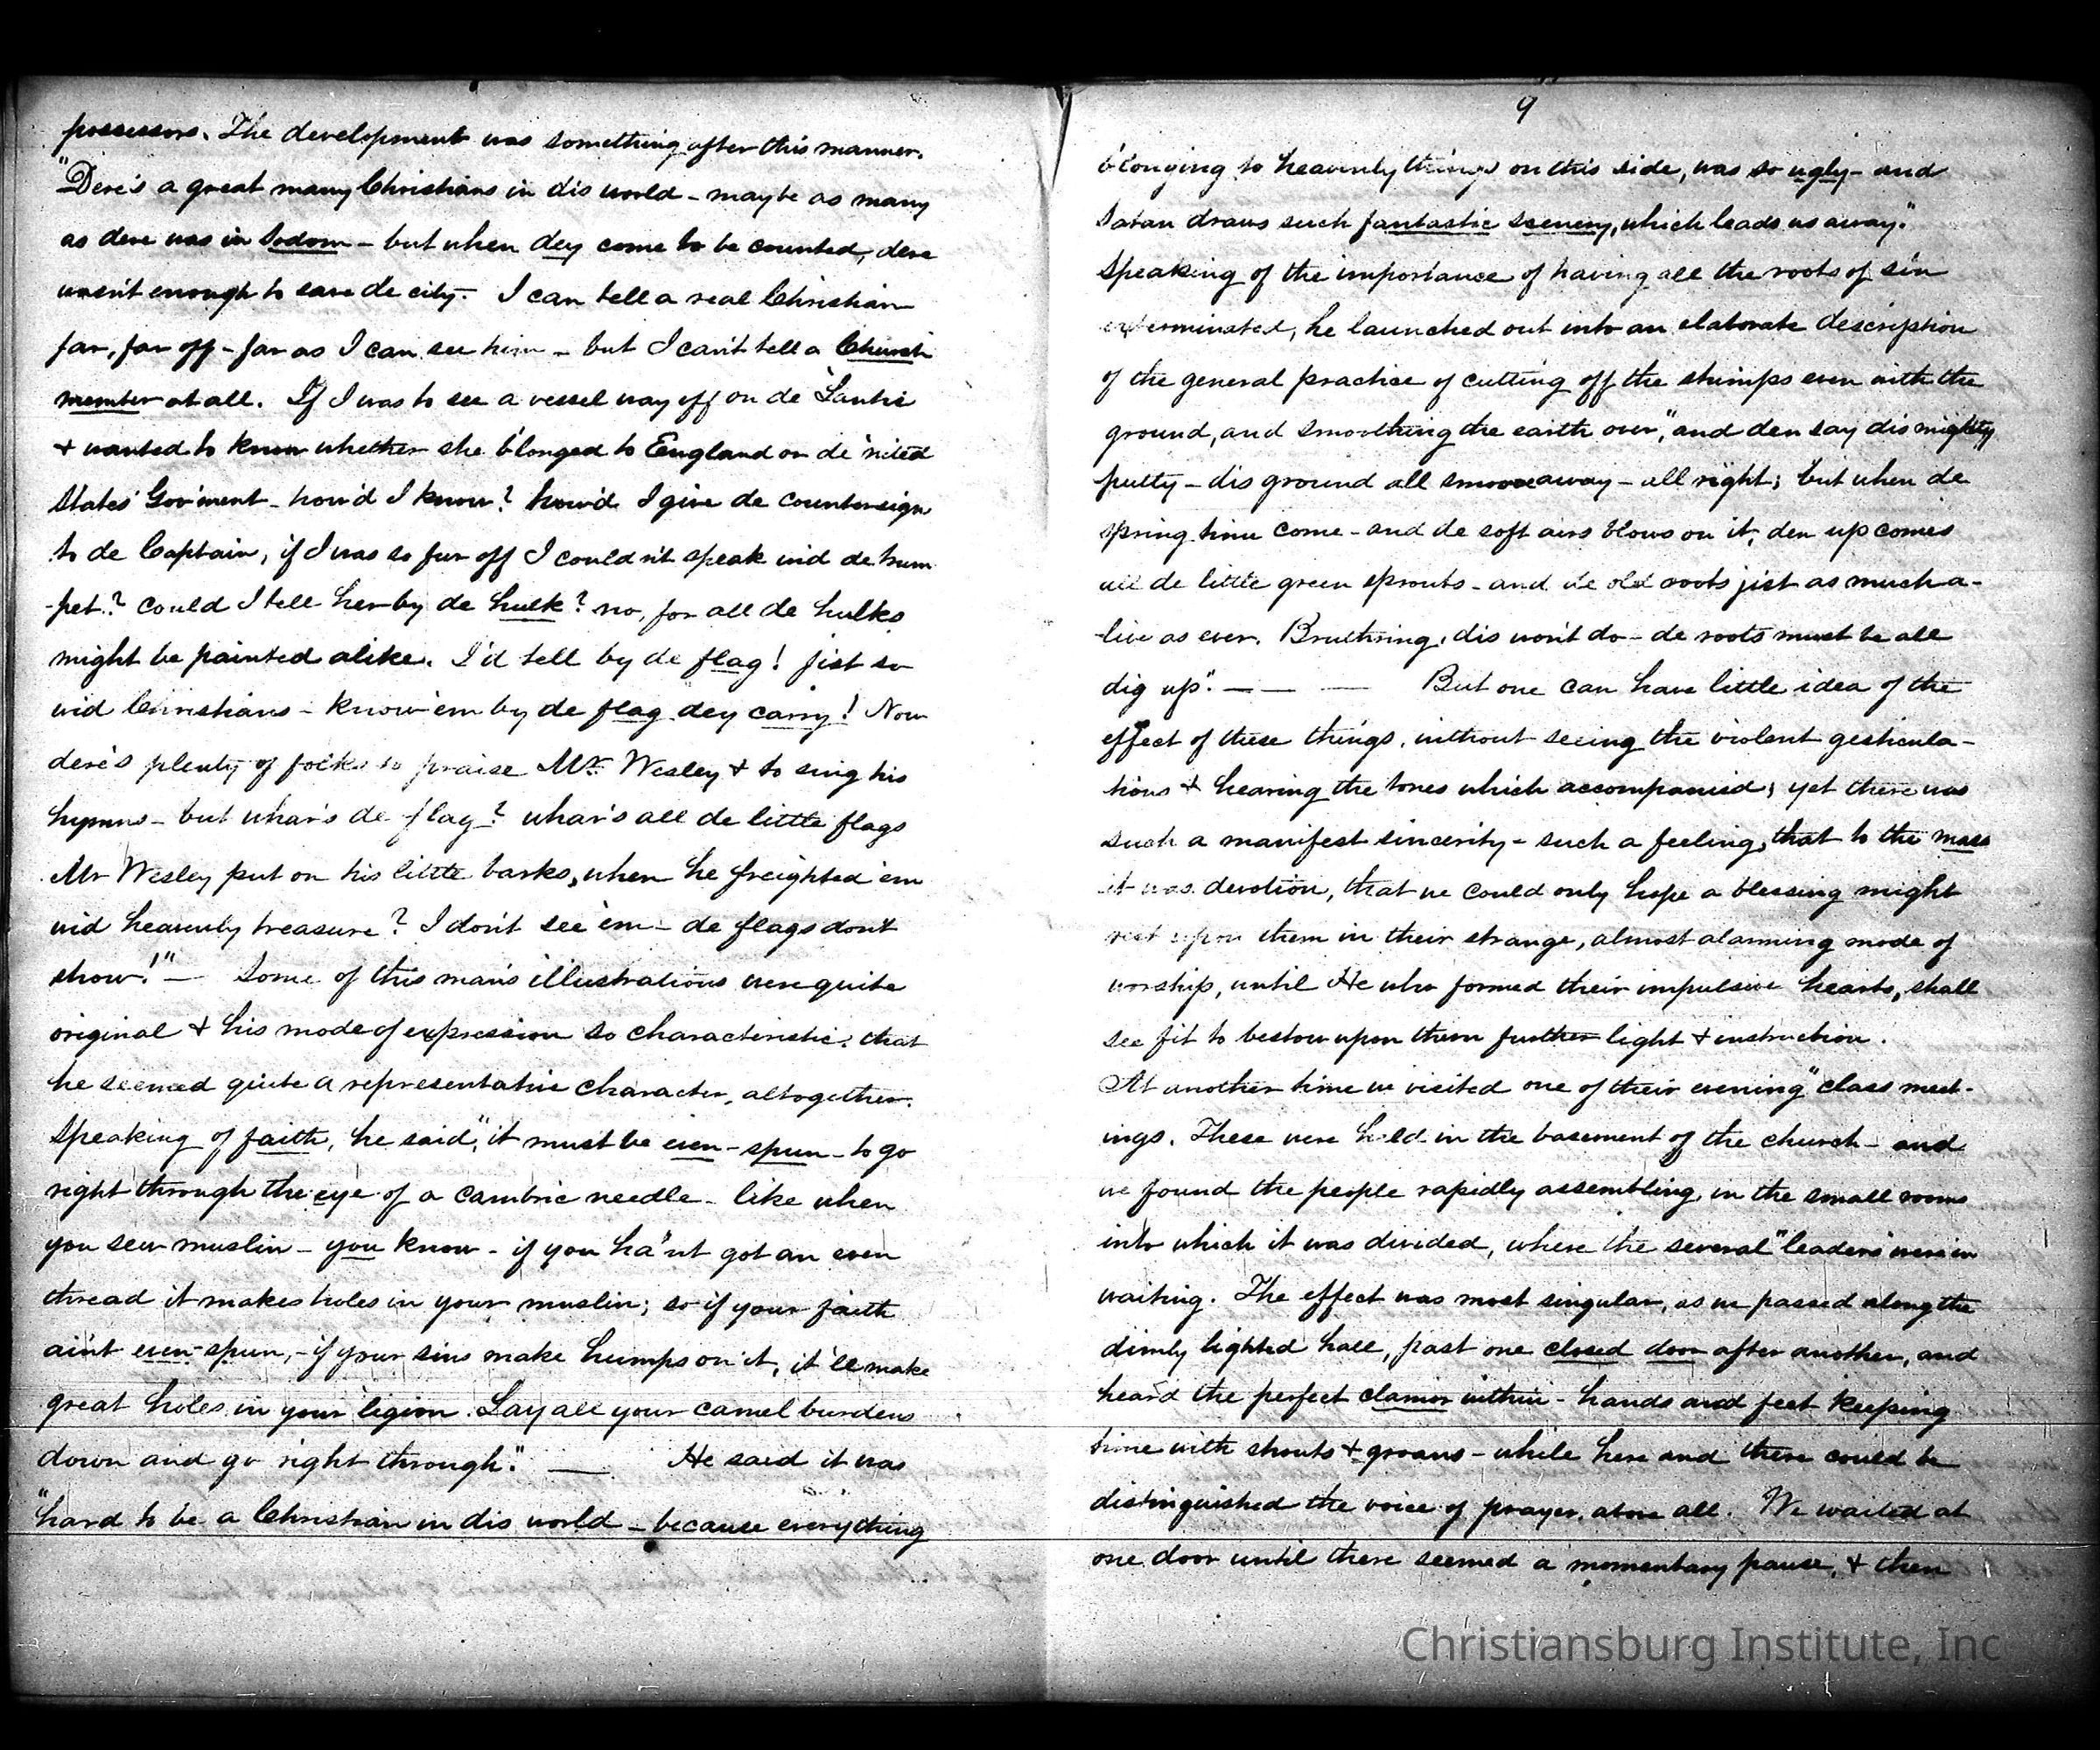 possessors. The development was something after this manner.
"Dere's a great many Christians in dis world - maybe as many
as dere was in Sodom - but when dey come to be counted, dere
wasn't enough to save de city. I can tell a real Christian
far, far off - far as I can see him - but I can't tell a Church
member at all. If I was to see a vessel way off on de 'Lantic
& wanted to know whether she b'longed to England or de 'nited
States Gov'ment - how'd I know? how'd I give de countersign
to de Captain, if I was so fur off I couldn't speak wid de trum
-pet? Could I tell her by de hulk? no, for all de hulks
might be painted alike. I'd tell by de flag! Jist so
wid Christians - know 'em by de flag dey carry! Now
dere's plenty of folks to praise Mr. Wesley & to sing his
hymns - but whar's de flag? whar's all de little flags
Mr Wesley put on his little barks, when he freighted 'em
wid heavenly treasure? I don't see 'em - de flags don't
show!" — Some of this man's illustrations were quite
original & his mode of expression so characteristic, that
he seemed quite a representative character, altogether.
Speaking of faith, he said, "it must be even - spun - to go
right through the eye of a cambric needle - like when
you sew muslin - you know - if you ha'nt got an even
thread it makes holes in your muslin; so if your faith
ain't even-spun, - if your sins make humps on it, it'll make
great holes in your 'ligion. Lay all your camel burdens
down and go right through." — He said it was
"hard to be a Christian in dis world - because everything
9
b'longing to heavenly things on this side, was so ugly - and
Satan draws such fantastic scenery, which leads us away."
Speaking of the importance of having all the roots of sin
exterminated, he launched out into an elaborate description
of the general practice of cutting off the stumps even with the
ground, and smoothing the earth over, "and den say dis mighty
putty - dis ground all smoove away - all right; but when de
spring time come - and de soft airs blows on it, den up comes
all de little green sprouts - and de old roots jist as much a-
-live as ever. Bruthring, dis won't do - de roots must be all
dig up". — — — But one can have little idea of the
effect of these things, without seeing the violent gesticula-
tions & hearing the tones which accompanied; yet there was
such a manifest sincerity - such a feeling, that to the mass
it was devotion, that we could only hope a blessing might
rest upon them in their strange, almost alarming mode of
worship, until He who formed their impulsive hearts, shall
see fit to bestow upon them further light & instruction.
At another time we visited one of their evening "class meet-
ings. These were held in the basement of the church - and
we found the people rapidly assembling, in the small rooms
into which it was divided, where the several "leaders" were in
waiting. The effect was most singular, as we passed along the
dimly lighted hall, past one closed door after another, and
heard the perfect clamor within - hands and feet keeping
time with shouts & groans - while here and there could be
distinguished the voice of prayer, above all. We waited at
one door until there seemed a momentary pause, & then
Christiansburg Institute, Inc